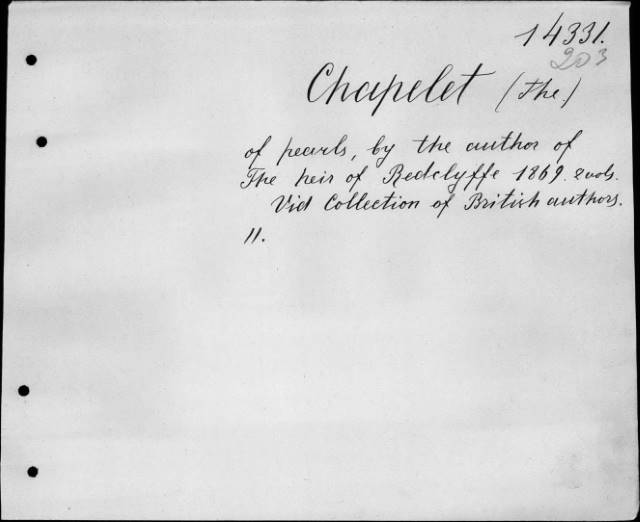 14331.
203
Chapelet (The)
of pearls, by the author of
The heir of Redclyffe 1869. 2 vols.
Vid Collection of British authors.
11.